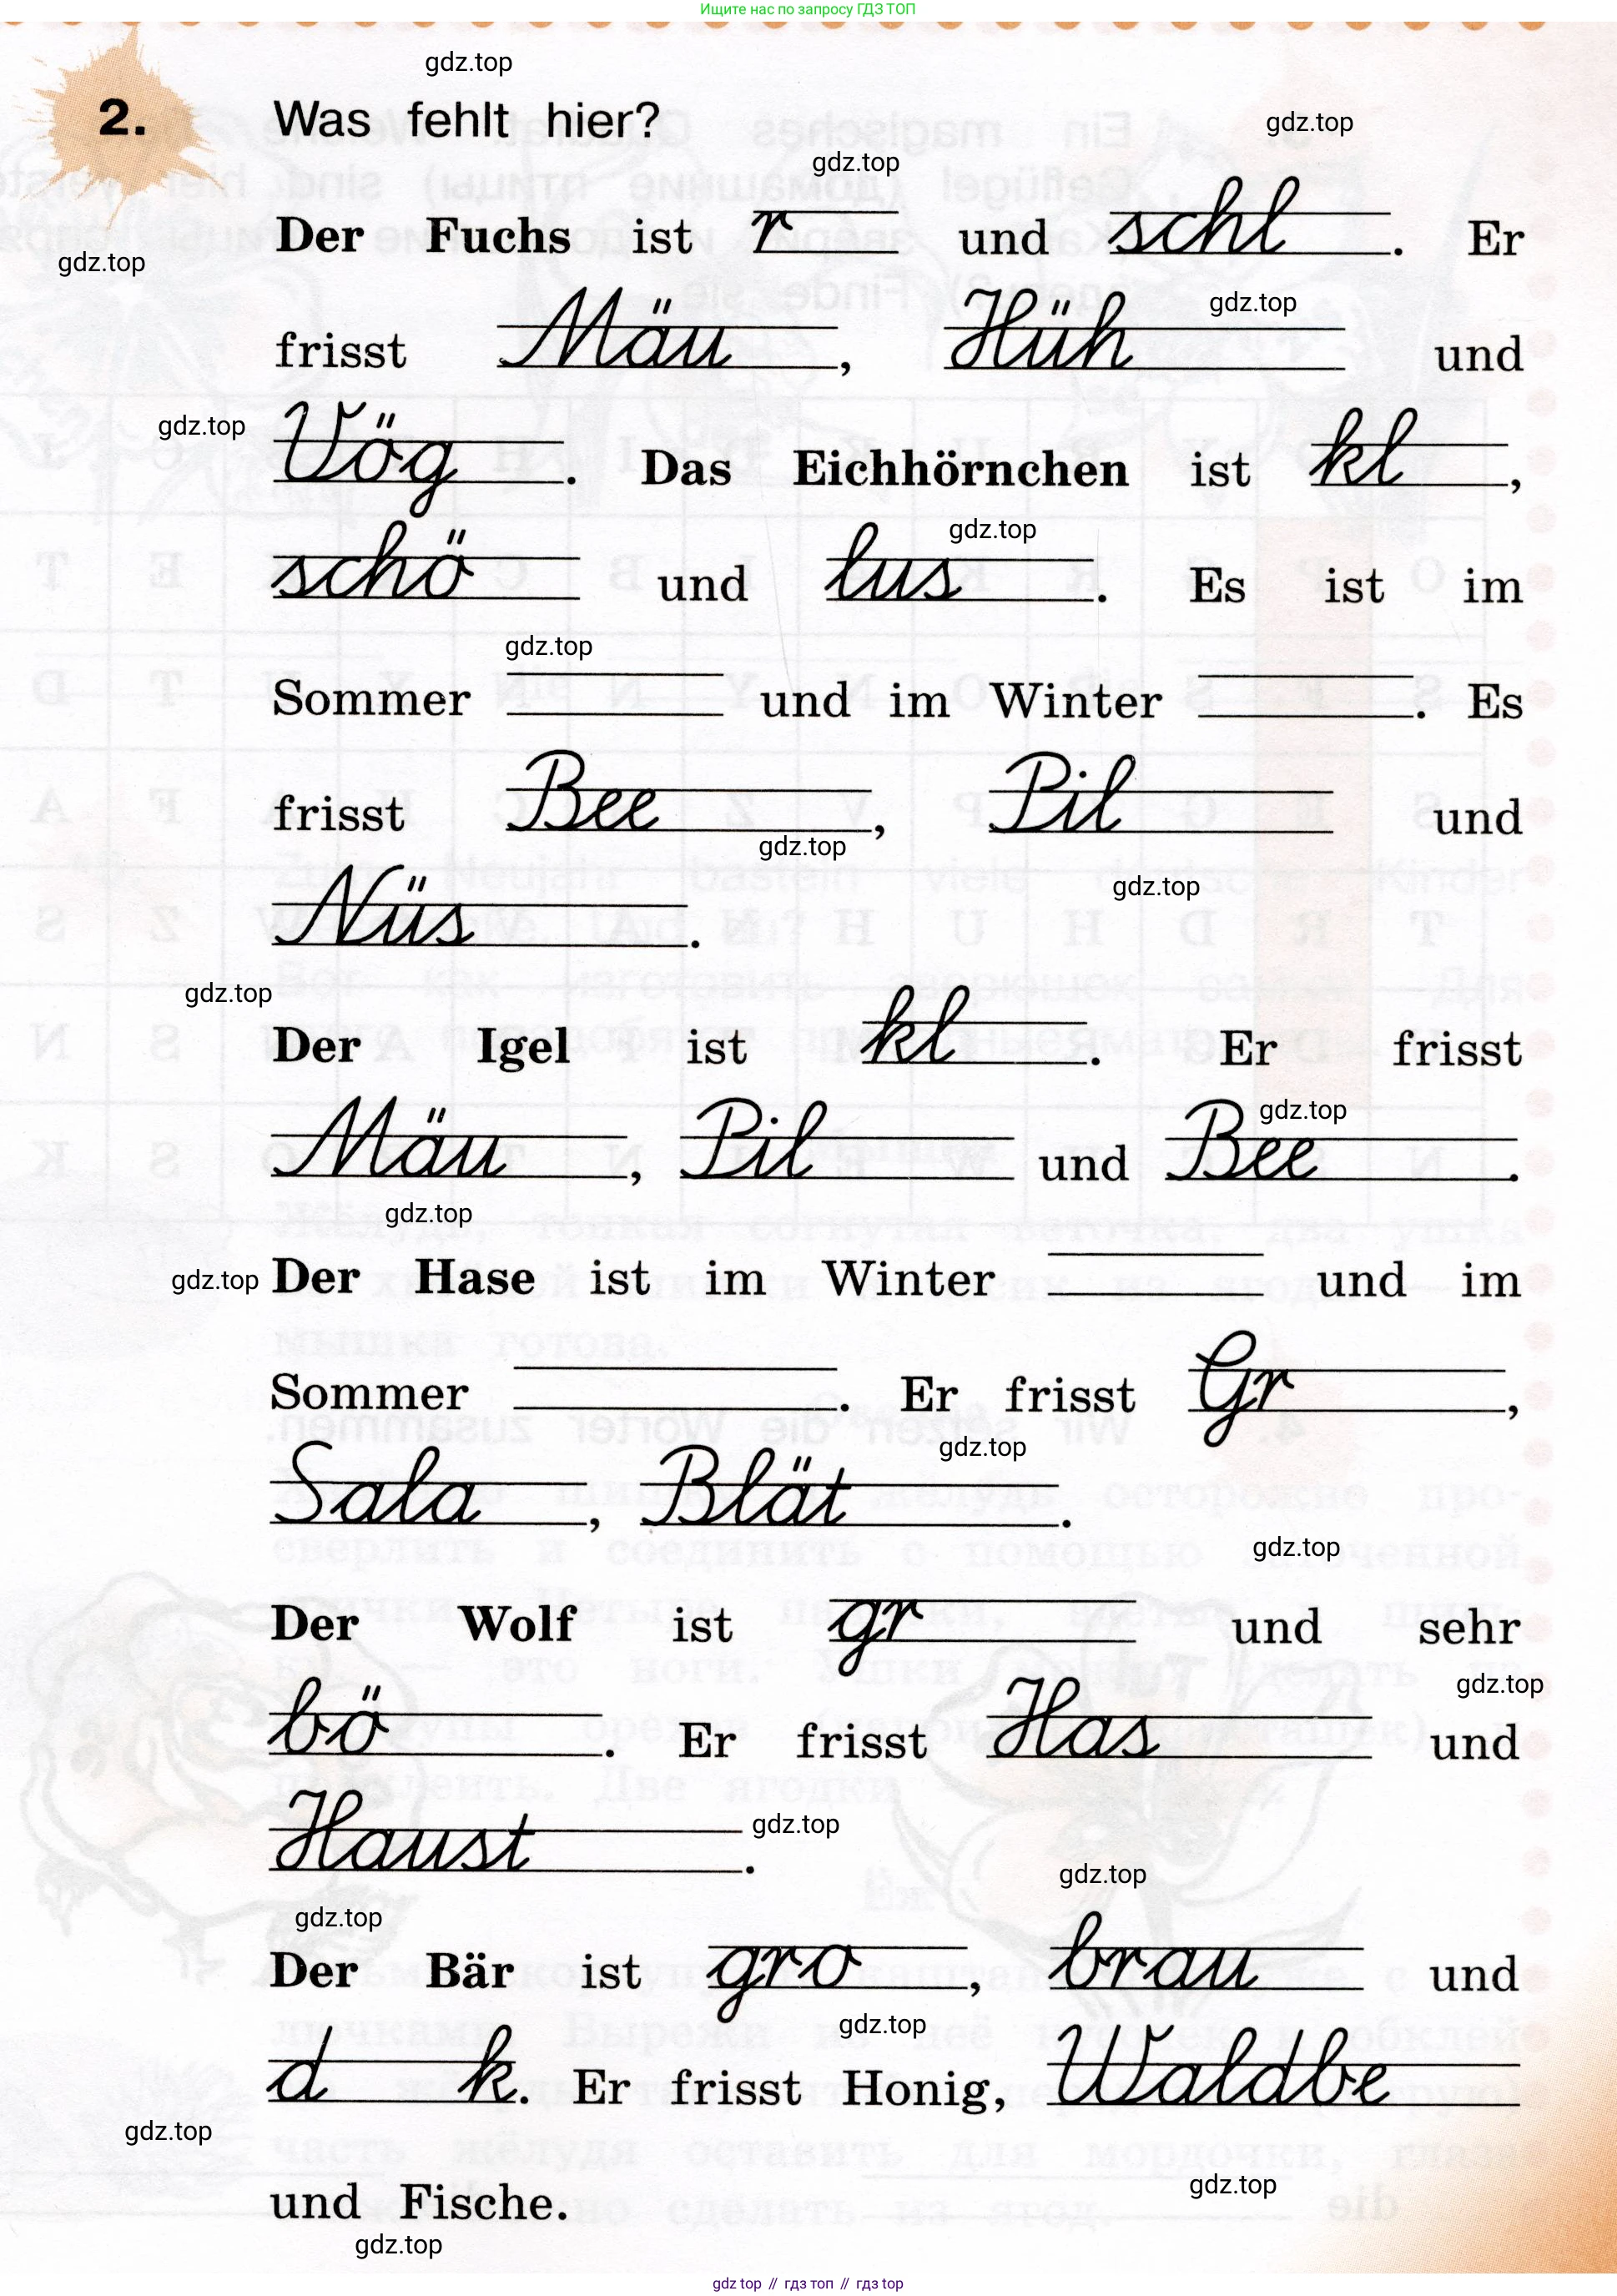 Ищите нас по запросу ГДЗ ТОП
gdz.top
2. Was fehlt hier?
gdz.top
gdz.top
Der Fuchs ist r und schl . Er
gdz.top
gdz.top
frisst Mäu , Hüh und
gdz.top
Vög . Das Eichhörnchen ist kl ,
gdz.top
schö und lus . Es ist im
gdz.top
Sommer und im Winter . Es
frisst Bee , Pil und
gdz.top
gdz.top
Nüs .
gdz.top
Der Igel ist kl . Er frisst
gdz.top
Mäu , Pil und Bee .
gdz.top
gdz.top Der Hase ist im Winter und im
Sommer . Er frisst Gr ,
gdz.top
Sala , Blät .
gdz.top
Der Wolf ist gr und sehr
gdz.top
bö . Er frisst Has und
gdz.top
Haust .
gdz.top
gdz.top
Der Bär ist gro , brau und
gdz.top
d k. Er frisst Honig, Waldbe
gdz.top
gdz.top
und Fische.
gdz.top
gdz top // гдз топ // гдз top